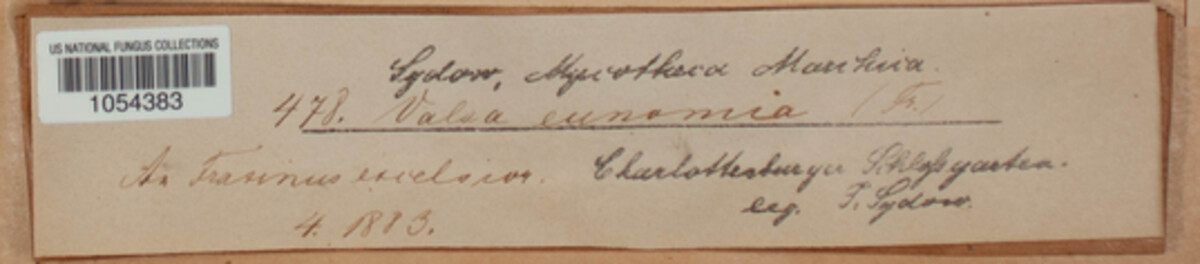 US NATIONAL FUNGUS COLLECTIONS
1054383
Sydow, Mycotheca Marchica.
478. Valsa eunomia (Fr.)
An Fraxinus excelsior. Charlottenburger Schloßgarten.
4. 1883. leg. P. Sydow.